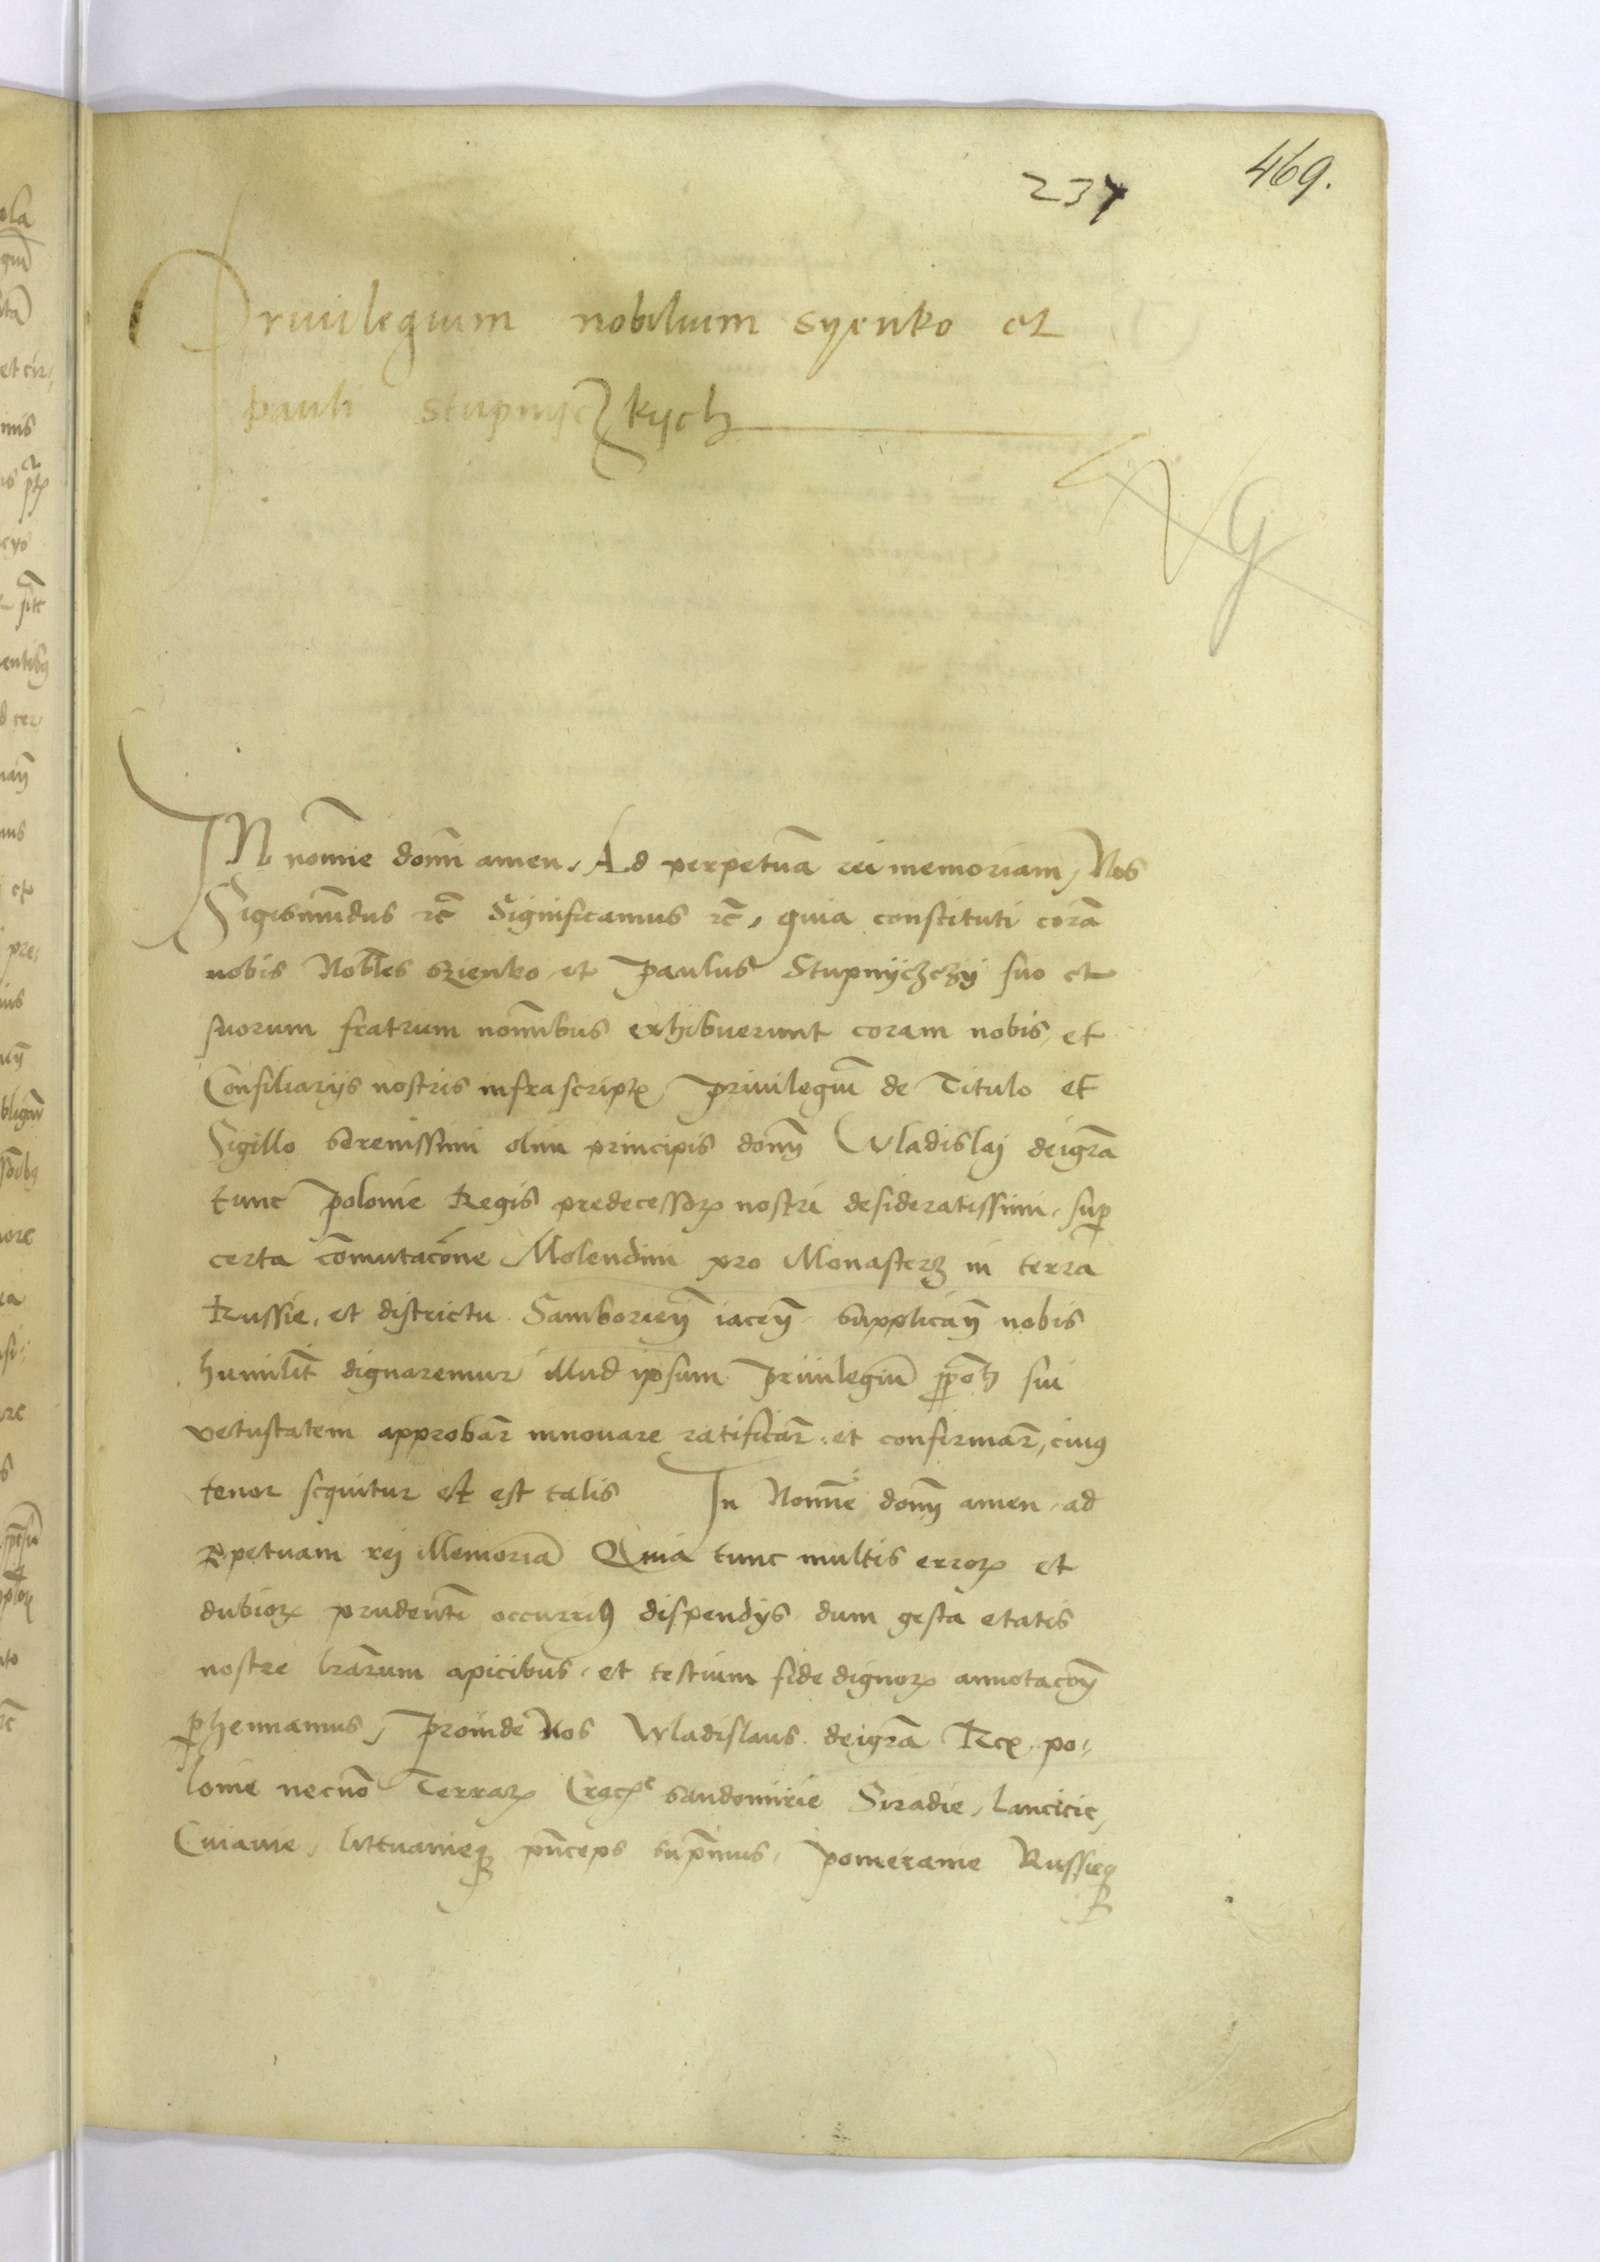 469.
237
Privilegium nobilium Syenko et
pauli Stupnyczkych
IN nomīe domī amen, Ad perpetuā rei memoriam, Nos
Sigismūdus rc̄ Significamus rc̄, quia constituti corā
nobis Nobiles Szienko et Paulus Stupnyczczy suo et
suorum fratrum nomībus exhibuerunt coram nobis et
Consiliarijs nostris infrascriptꝭ Priuilegiū de Titulo et
Sigillo Serenissimi olim principis domỹ Wladislaj dei grā
tunc Polonie Regis predecessorꝭ nostri desideratissimi, suꝑ
certa cōmutacōne Molendini pro Monasterꝫ in terra
Russie, et districtu Samborieñ iaceñ supplicañ nobis
humilit̄ dignaremur illud ipsum Priuilegiū sui
vetustatem approbar̄ innouare ratificar̄ et confirmar̄, cuiꝯ
tenor sequitur et est talis In Nomīe domỹ amen, ad
Ꝑpetuam rej Memoriā Quia tunc multis errorꝝ et
dubiorꝝ prudent̄ occurriꝯ dispendijs dum gesta etatis
nostre lrārum apicibus, et testium fide dignorꝝ annotacoñ
ꝑhennamus, Proinde Nos Wladislaus dei grā Rex po-
lonie necnō Terrarꝝ Cracꝭᵉ Sandomirie Siradie, Lancicie,
Cuiauie, Littuanieqꝫ p̄nceps sup̄mus, Pomeranie Russieqꝫ